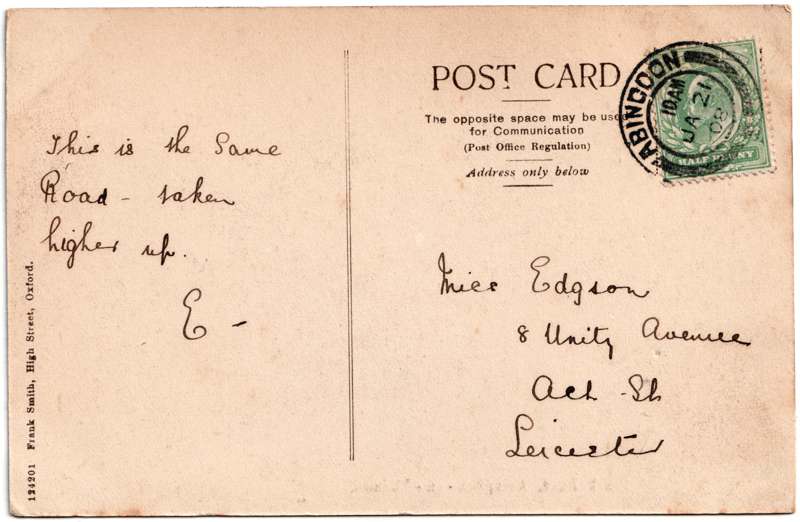 POST CARD
The opposite space may be used
for Communication
(Post Office Regulation)
Address only below
ABINGDON
10 AM
JA 21
08
HALF PENNY
This is the Same
Road - taken
higher up.
E -
Miss Edgson
8 Unity Avenue
Leicester
124201 Frank Smith, High Street, Oxford.